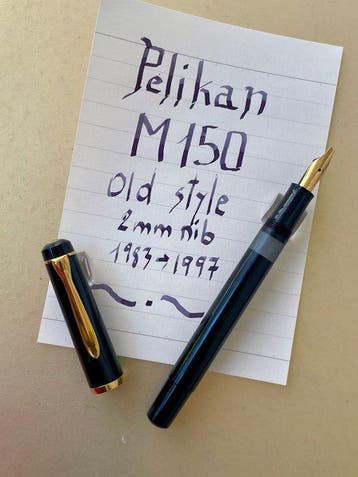 Pelikan
M150
Old style
2mm nib
1983→1997
~.~